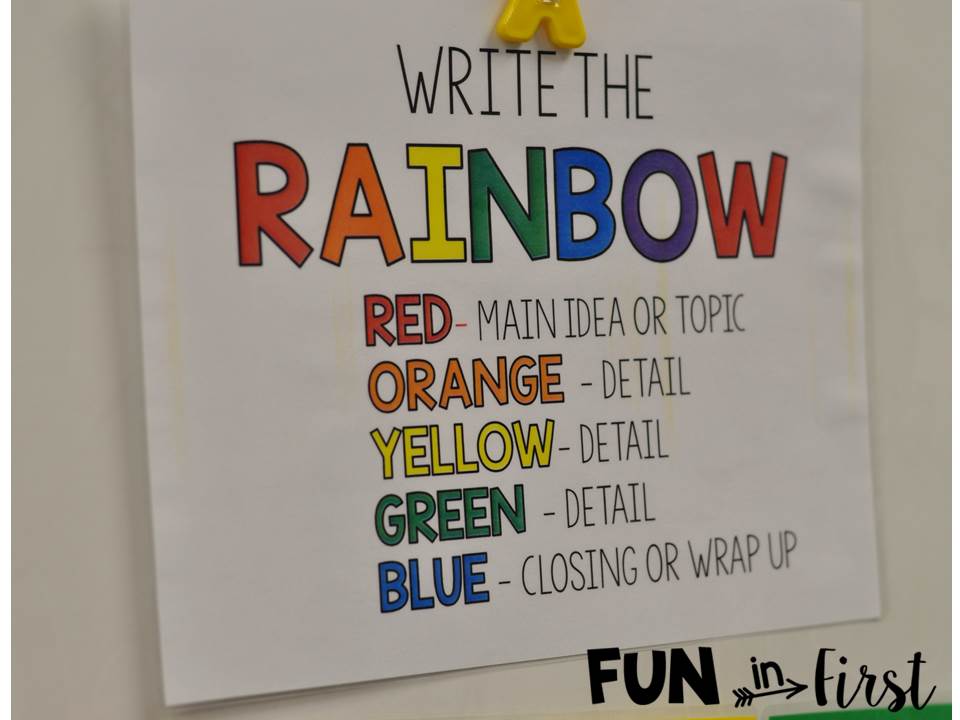 WRITE THE
RAINBOW
RED- MAIN IDEA OR TOPIC
ORANGE - DETAIL
YELLOW- DETAIL
GREEN - DETAIL
BLUE - CLOSING OR WRAP UP
FUN in First